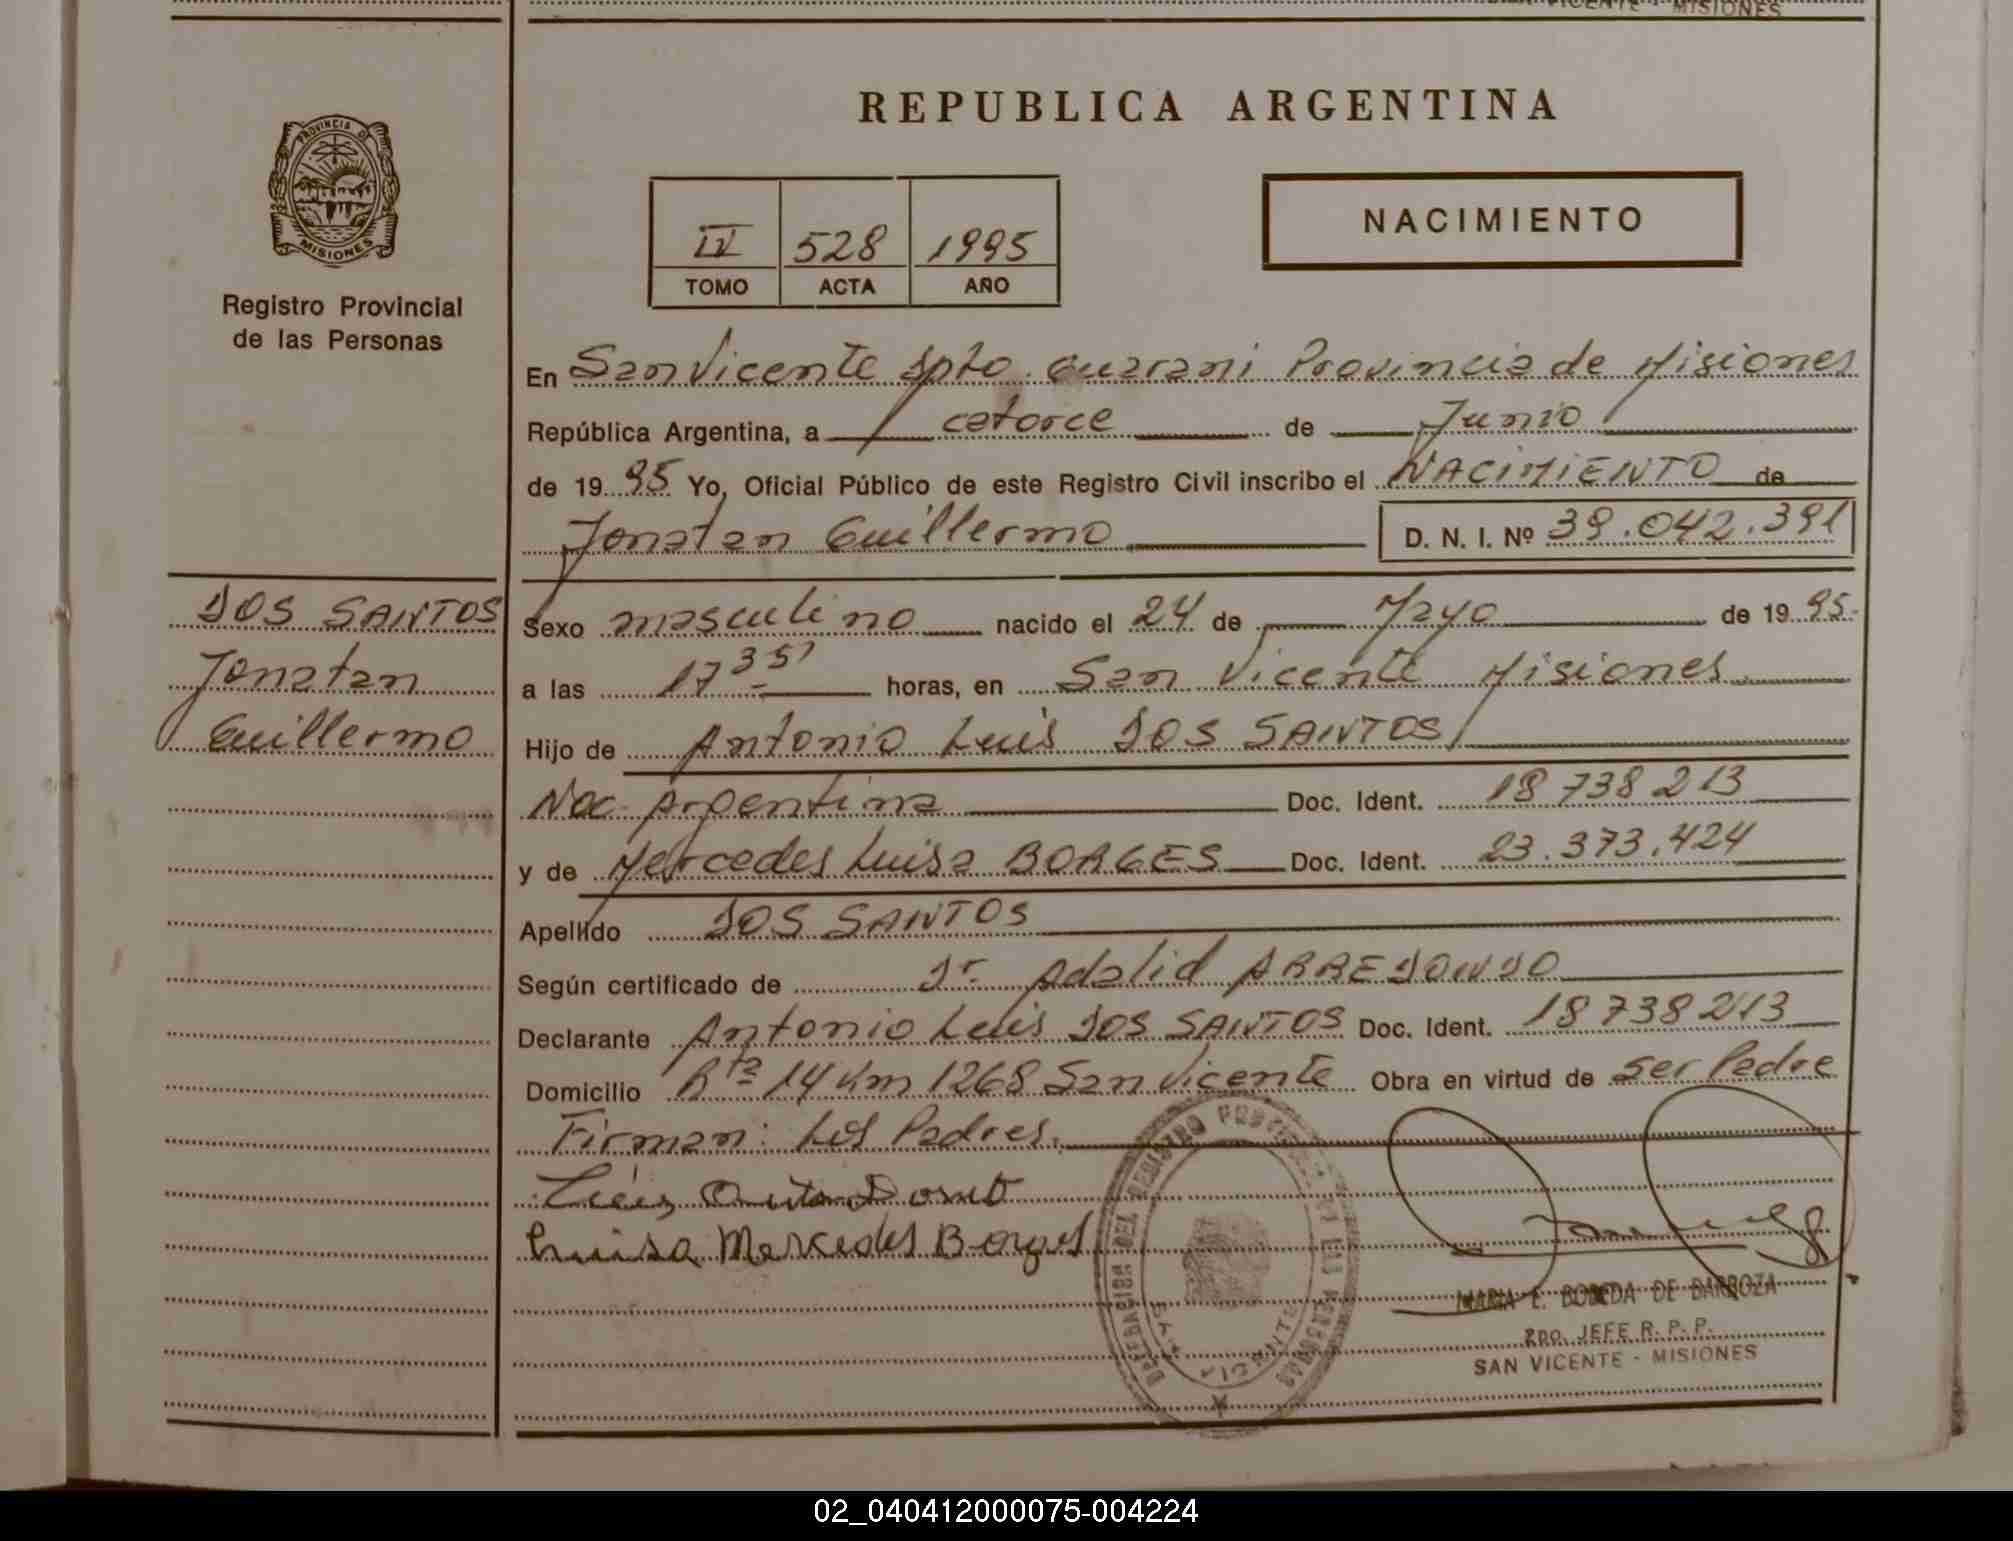 VICENTE - MISIONES
REPUBLICA ARGENTINA
PROVINCIA DE
MISIONES
Registro Provincial
de las Personas
IV 528 1995
TOMO ACTA AÑO
NACIMIENTO
En San Vicente Dpto. Guarani Provincia de Misiones
República Argentina, a catorce de Junio
de 1995 Yo, Oficial Público de este Registro Civil inscribo el NACIMIENTO de
Jonatan Guillermo D. N. I. Nº 39.042.391
DOS SANTOS
Jonatan
Guillermo
Sexo masculino nacido el 24 de Mayo de 1995.
a las 17 35' horas, en San Vicente Misiones
Hijo de Antonio Luis DOS SANTOS
Nac. Argentina Doc. Ident. 18 738 213
y de Mercedes Luisa BORGES Doc. Ident. 23.373.424
Apellido DOS SANTOS
Según certificado de Dr. Adalid ARREDONDO
Declarante Antonio Luis DOS SANTOS Doc. Ident. 18 738 213
Domicilio Rta 14 Km 1268 San Vicente Obra en virtud de ser Padre
Firman: Los Padres.
Luisa Mercedes Borges
DELEGACION DEL REGISTRO PROVINCIAL DE LAS PERSONAS
SAN VICENTE
MARIA E. BOBEDA DE BARBOZA
2do. JEFE R. P. P.
SAN VICENTE - MISIONES
02_040412000075-004224